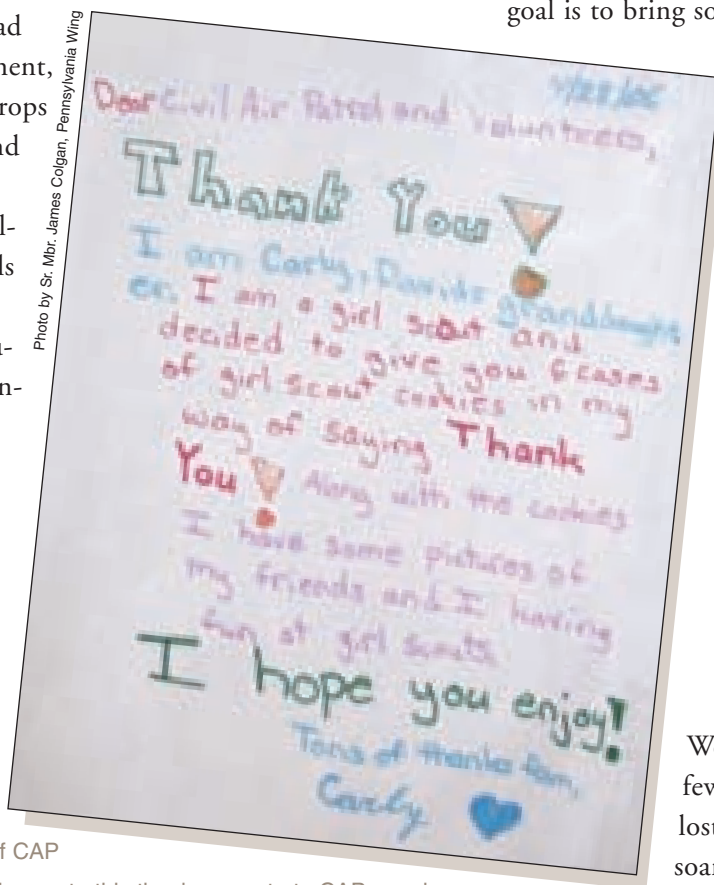 goal is to bring so
ad
nent,
rops
nd
l-
ls
u-
n-
Photo by Sr. Mbr. James Colgan, Pennsylvania Wing
Dear Civil Air Patrol and Volunteers,
Thank You!
I am Carly, grandaught
er. I am a girl scout and
decided to give you 6 cases
of girl scout cookies in my
way of saying Thank
You! Along with the cookies
I have some pictures of
my friends and I having
fun at girl scouts
I hope you enjoy!
Tons of thanks
Carly
W
few
lost
soar
f CAP